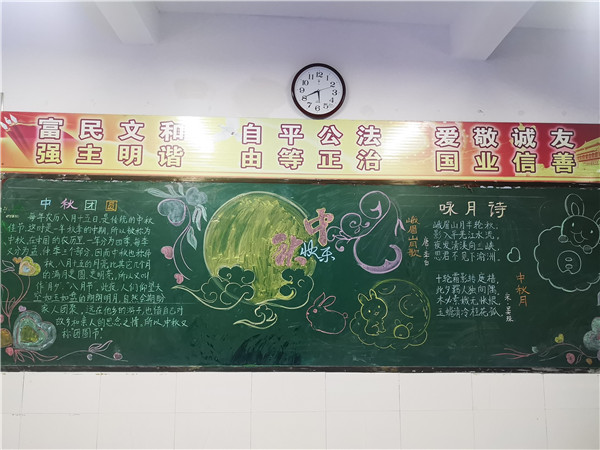 富民文和 自平公法 爱敬诚友
强主明谐 由等正治 国业信善
中秋团圆
每年农历八月十五日是传统的中秋
佳节。这时是一年秋季的中期,所以被称为
中秋。在中国的农历里一年分为四季,每季
又分为孟、仲、季三个部分,因而中秋也称仲
秋。八月十五的月亮比其它几个月
的满月更圆,更明亮,所以又叫
作月夕,"八月节"。此夜,人们仰望天
空如玉如盘的朗朗明月,自然会期盼
家人团聚。远在他乡的游子,也借自己对
故乡和亲人的思念之情。所以中秋又
称"团圆节"。
中秋
快乐
咏月诗
峨眉山月歌
唐·李白
峨眉山月半轮秋,
影入平羌江水流。
夜发清溪向三峡,
思君不见下渝洲。
中秋月
宋·晏殊
十轮霜影转庭梧,
此夕羁人独向隅。
未必素娥无怅恨,
玉蟾清冷桂花孤。